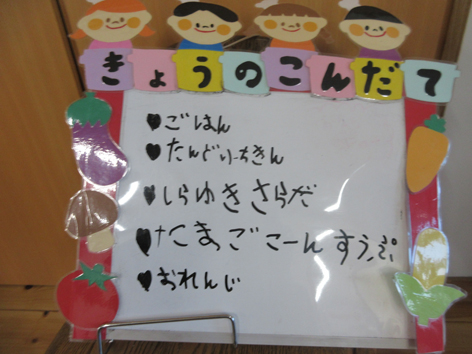 きょうのこんだて
♥ごはん
♥たんどりーちきん
♥しらゆきさらだ
♥たまごこーんすうぷ
♥おれんじ